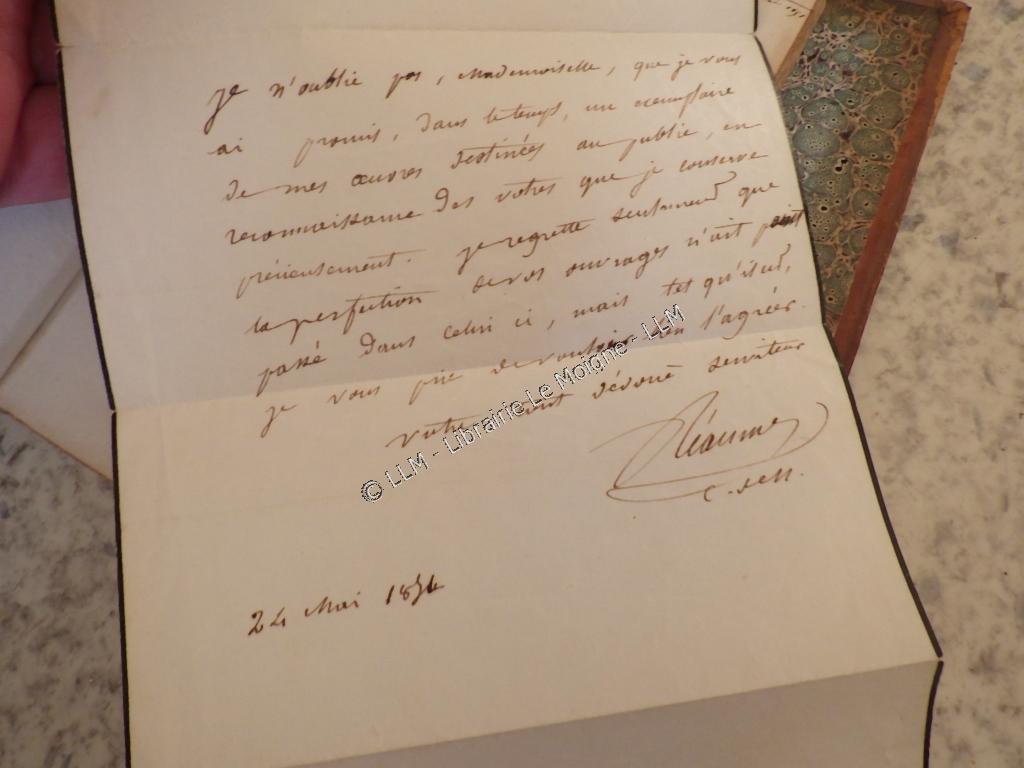 je n'oublie pas, Mademoiselle, que je vous
ai promis, dans le temps, un exemplaire
de mes œuvres destinées au public, en
reconnaissance des votres que je conserve
précieusement. je regrette seulement que
la perfection de vos ouvrages n'ait point
passé dans celui ci, mais tel qu'il est,
je vous prie de vouloir bien l'agréer.
votre tout dévoué serviteur
Réaume
24 Mai 1854
© LLM - Librairie Le Moigne - LLM